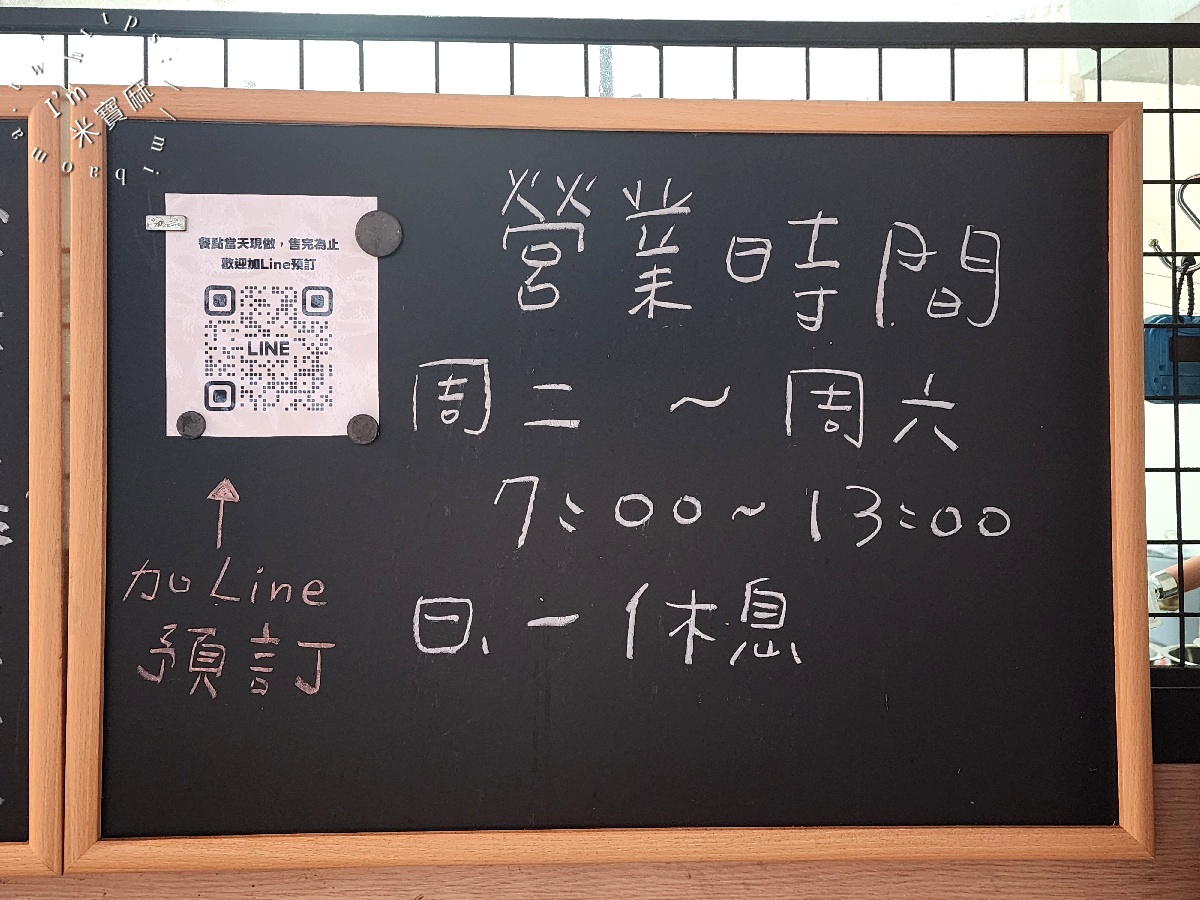 餐點當天現做，售完為止
歡迎加Line預訂
LINE
加Line
預訂
營業時間
周二 ~ 周六
7:00~13:00
日、一 休息
I'm 米寶麻